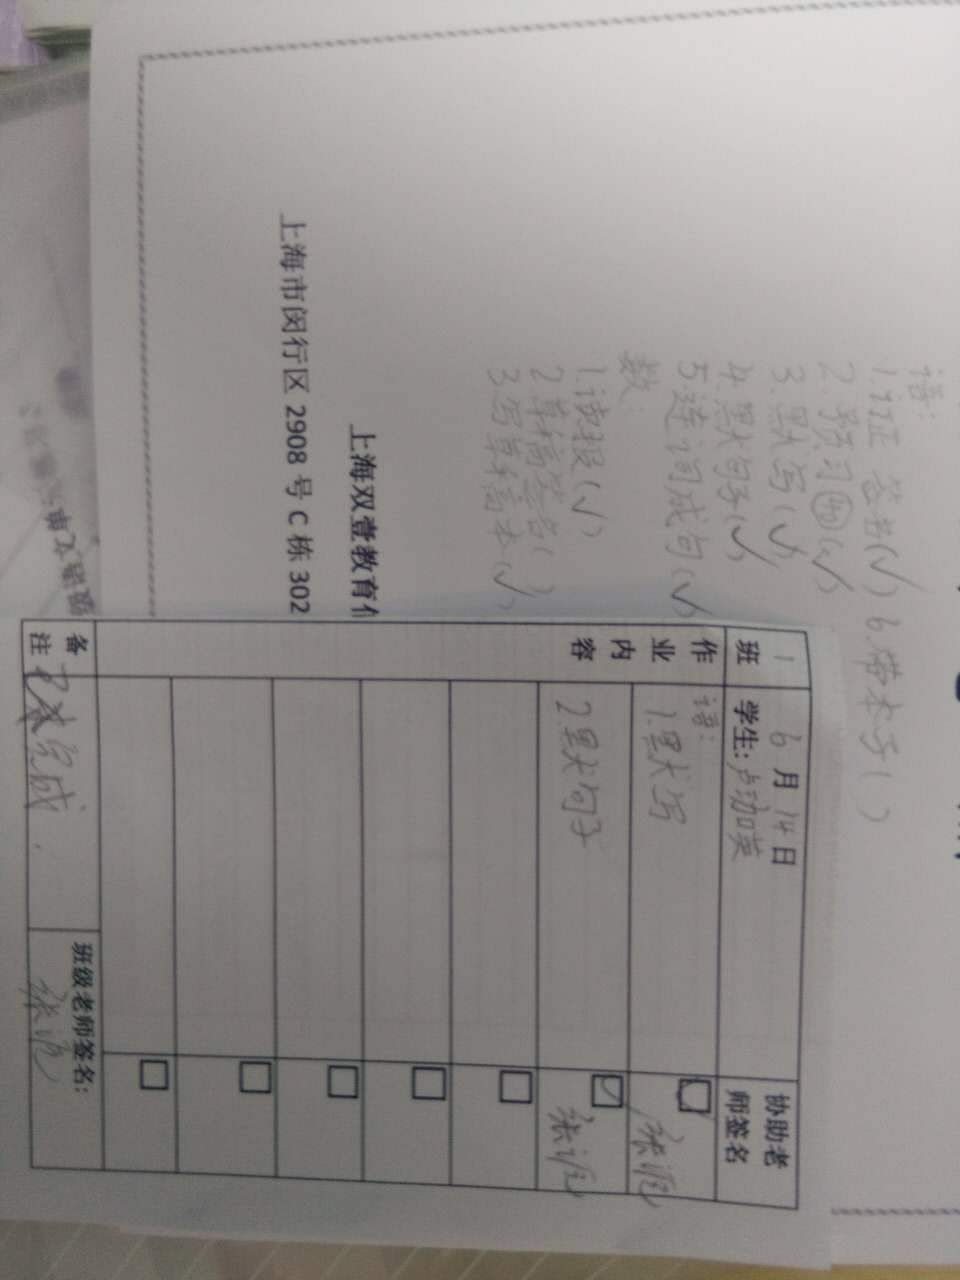 语:
1.订正 签名(√) 6.带本子( )
2.预习㊵(√)
3.默写(√)
4.默句子(√)
5.连词成句(√)
数:
1.读报(√)
2.草稿签名( )
3.写草稿本(√)
上海双壹教育
上海市闵行区 2908 号 C 栋 302
1班
6月14日
学生:
协助老师签名
作业内容
语:
1.默写
2.默句子
备注
已完成.
班级老师签名: